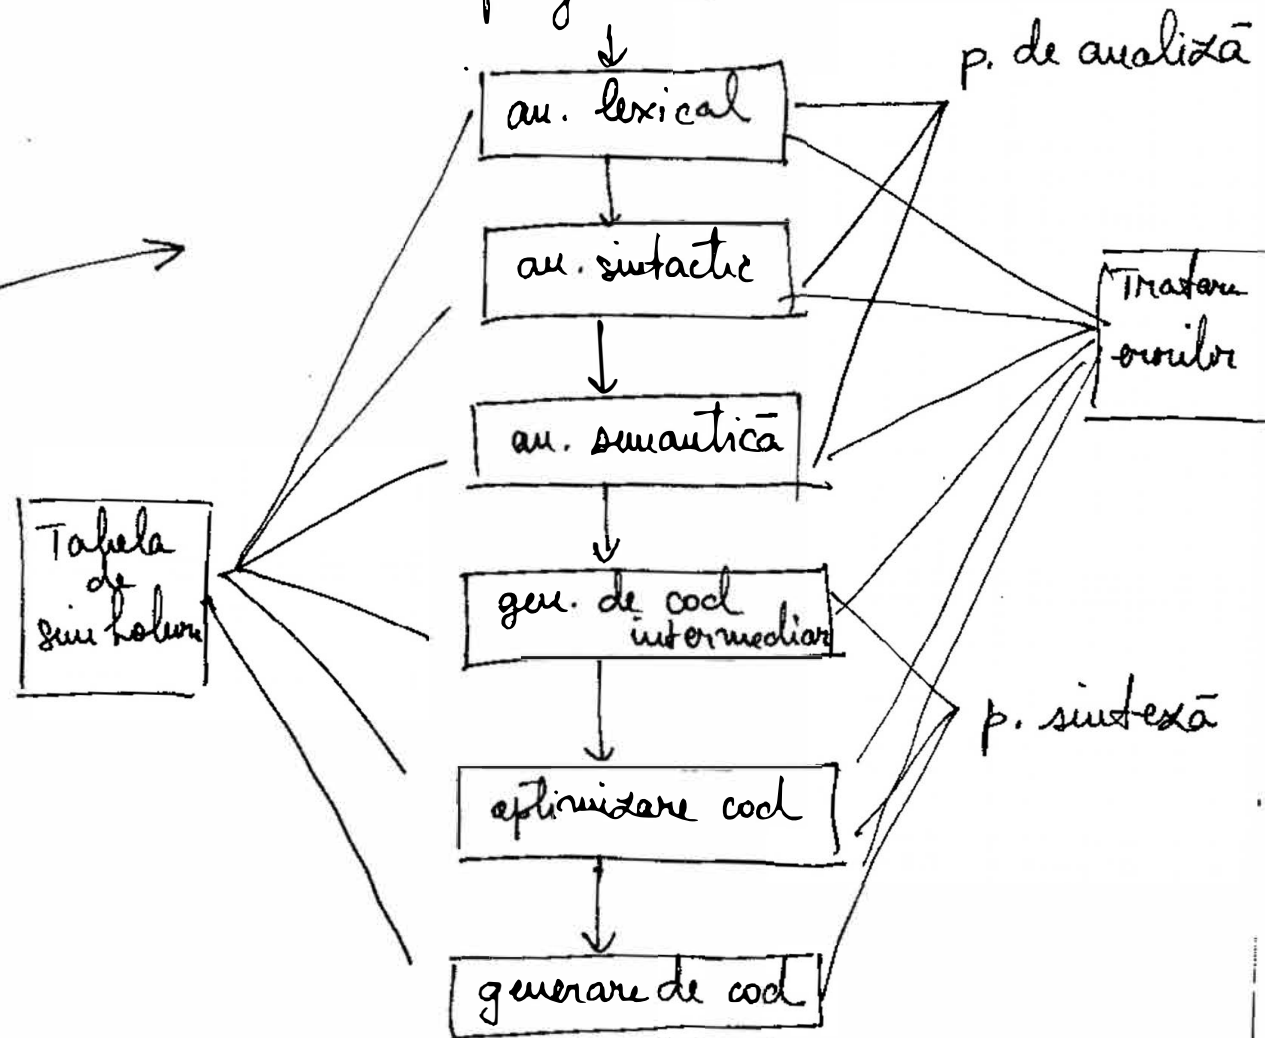 p. de analiză
an. lexical
an. sintactic
Tratare
erorilor
an. semantică
Tabela
de
simboluri
gen. de cod
intermediar
p. sinteză
optimizare cod
generare de cod